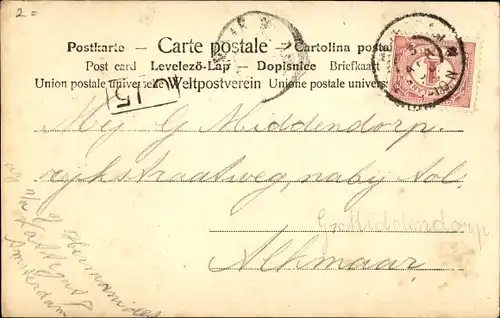 2=
Postkarte — Carte postale — Cartolina postal
Post card Levelezö-Lap — Dopisnice Briefkaart
Union postale universelle Weltpostverein Unione postale univers
15
Mej G Middendorp.
rijksstraatweg, naby Tol.
G. Middendorp
Alkmaar
Amsterdam